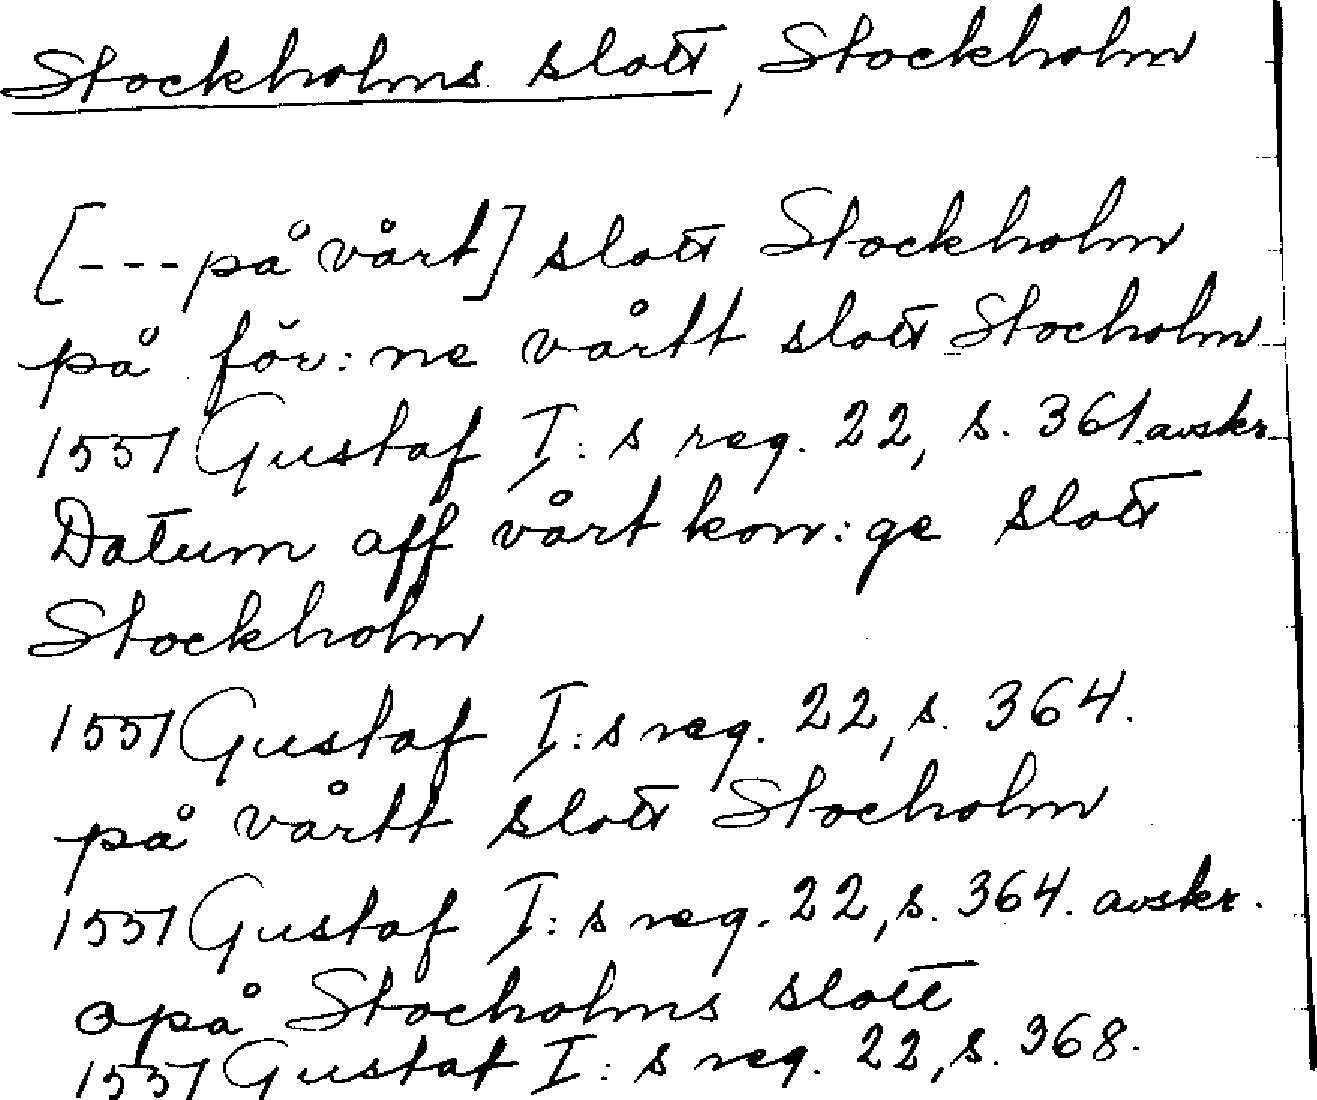 Stockholms slott, Stockholm
[--- på vårt] slott Stockholm
på för:ne vårtt slott Stocholm
1551 Gustaf I:s reg. 22, s. 361. avskr.
Datum aff vårt kon:ge slott
Stockholm
1551 Gustaf I:s reg. 22, s. 364.
på vårtt slott Stocholm
1551 Gustaf I:s reg. 22, s. 364. avskr.
opå Stocholms slott
1551 Gustaf I:s reg. 22, s. 368.